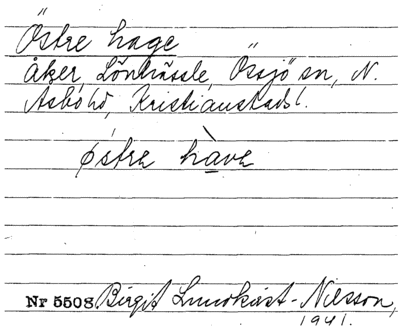 Östre hage
Åker, Lönhässle, Össjö sn, N.
Åsbo hd, Kristianstads l.
østre hàve
Nr 5508 Birgit Lundkvist-Nilsson,
1941.